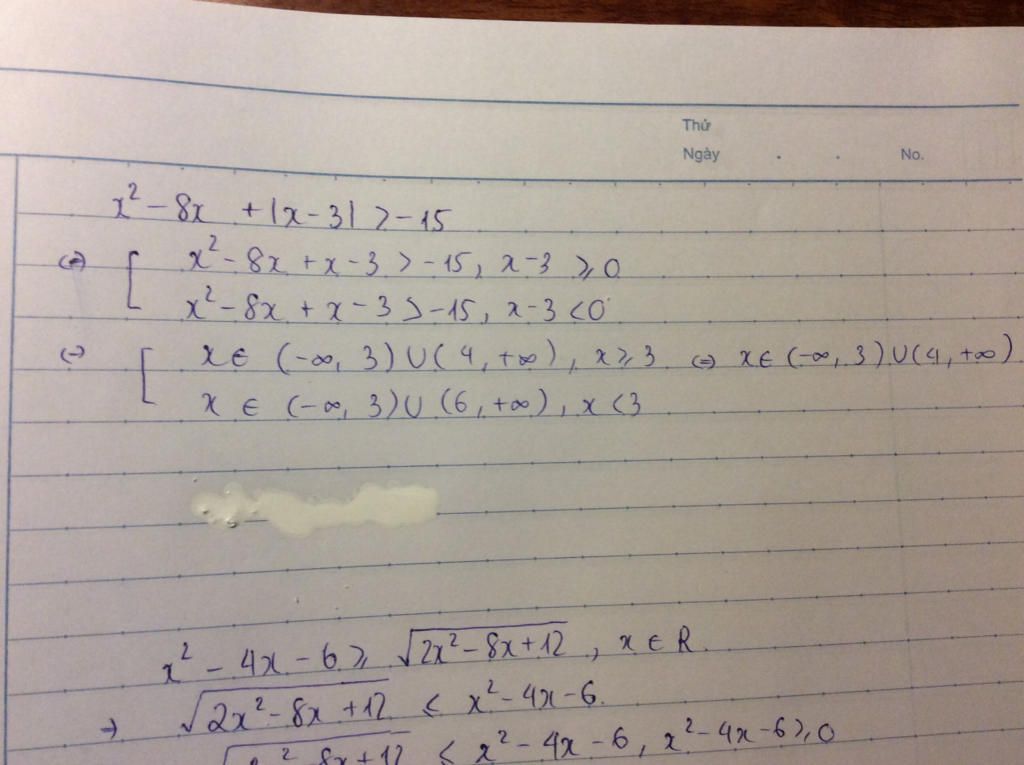 Thứ
Ngày . . No.
x² - 8x + |x - 3| > -15
(=) [ x² - 8x + x - 3 > -15, x - 3 ≥ 0
x² - 8x + x - 3 > -15, x - 3 < 0
(=) [ x ∈ (-∞, 3) ∪ (4, +∞), x ≥ 3 (=) x ∈ (-∞, 3) ∪ (4, +∞)
x ∈ (-∞, 3) ∪ (6, +∞), x < 3
x² - 4x - 6 ≥ √(2x² - 8x + 12), x ∈ R.
→ √(2x² - 8x + 12) ≤ x² - 4x - 6.
x² - 8x + 12 ≤ x² - 4x - 6, x² - 4x - 6 ≥ 0